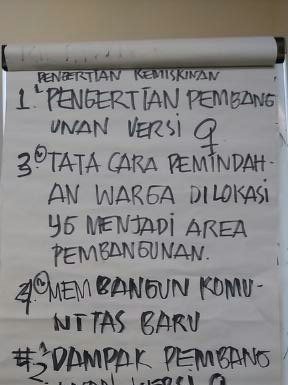 PENGERTIAN KEMISKINAN
1. PENGERTIAN PEMBANG
UNAN VERSI
3. TATA CARA PEMINDAH-
AN WARGA DILOKASI
YG MENJADI AREA
PEMBANGUNAN.
4. MEMBANGUN KOMU-
NITAS BARU
#2 DAMPAK PEMBANG